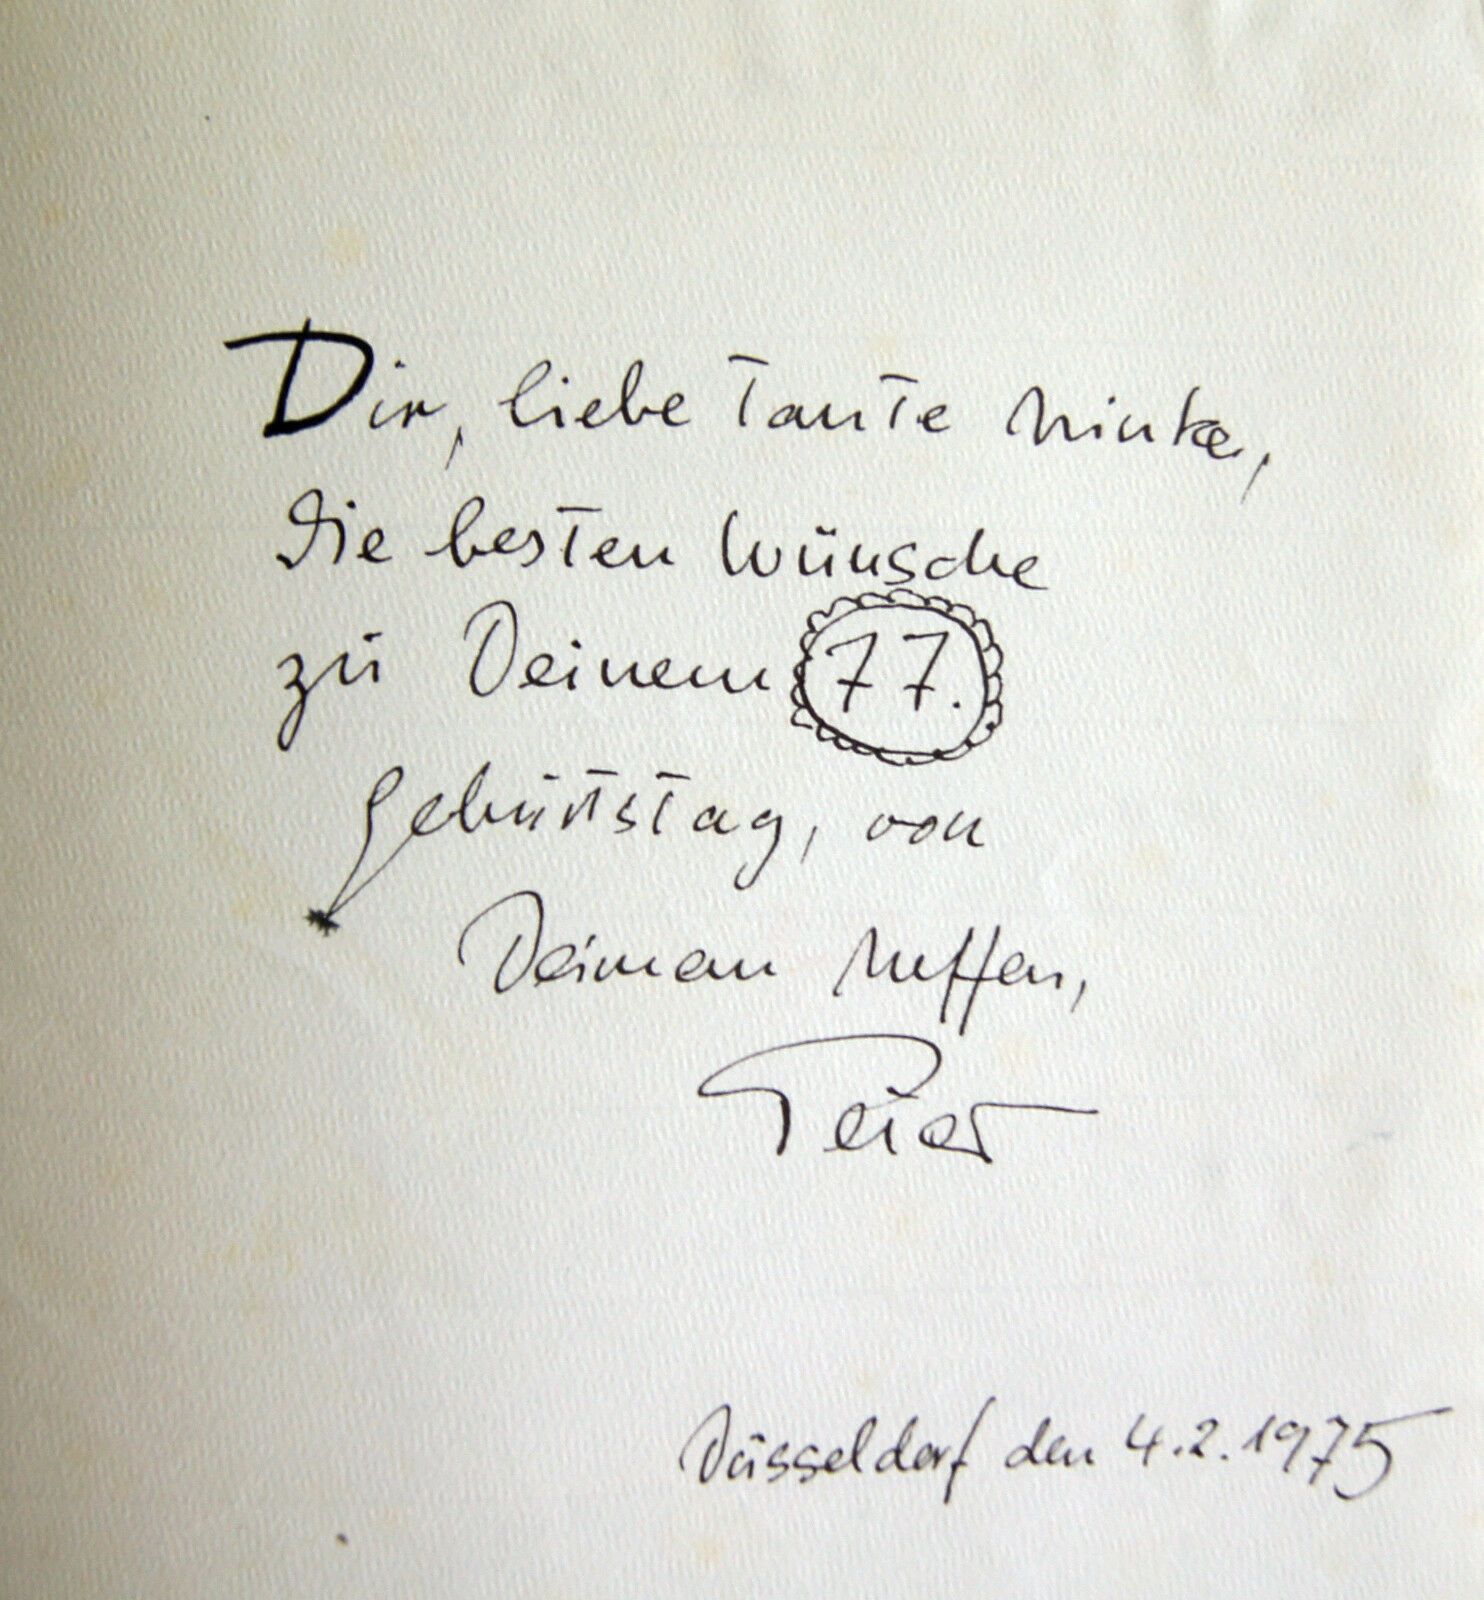 Dir, liebe Tante Ninke,
die besten Wünsche
zu Deinem 77.
Geburtstag, von
Deinen Neffen,
Peter
Düsseldorf den 4.2.1975